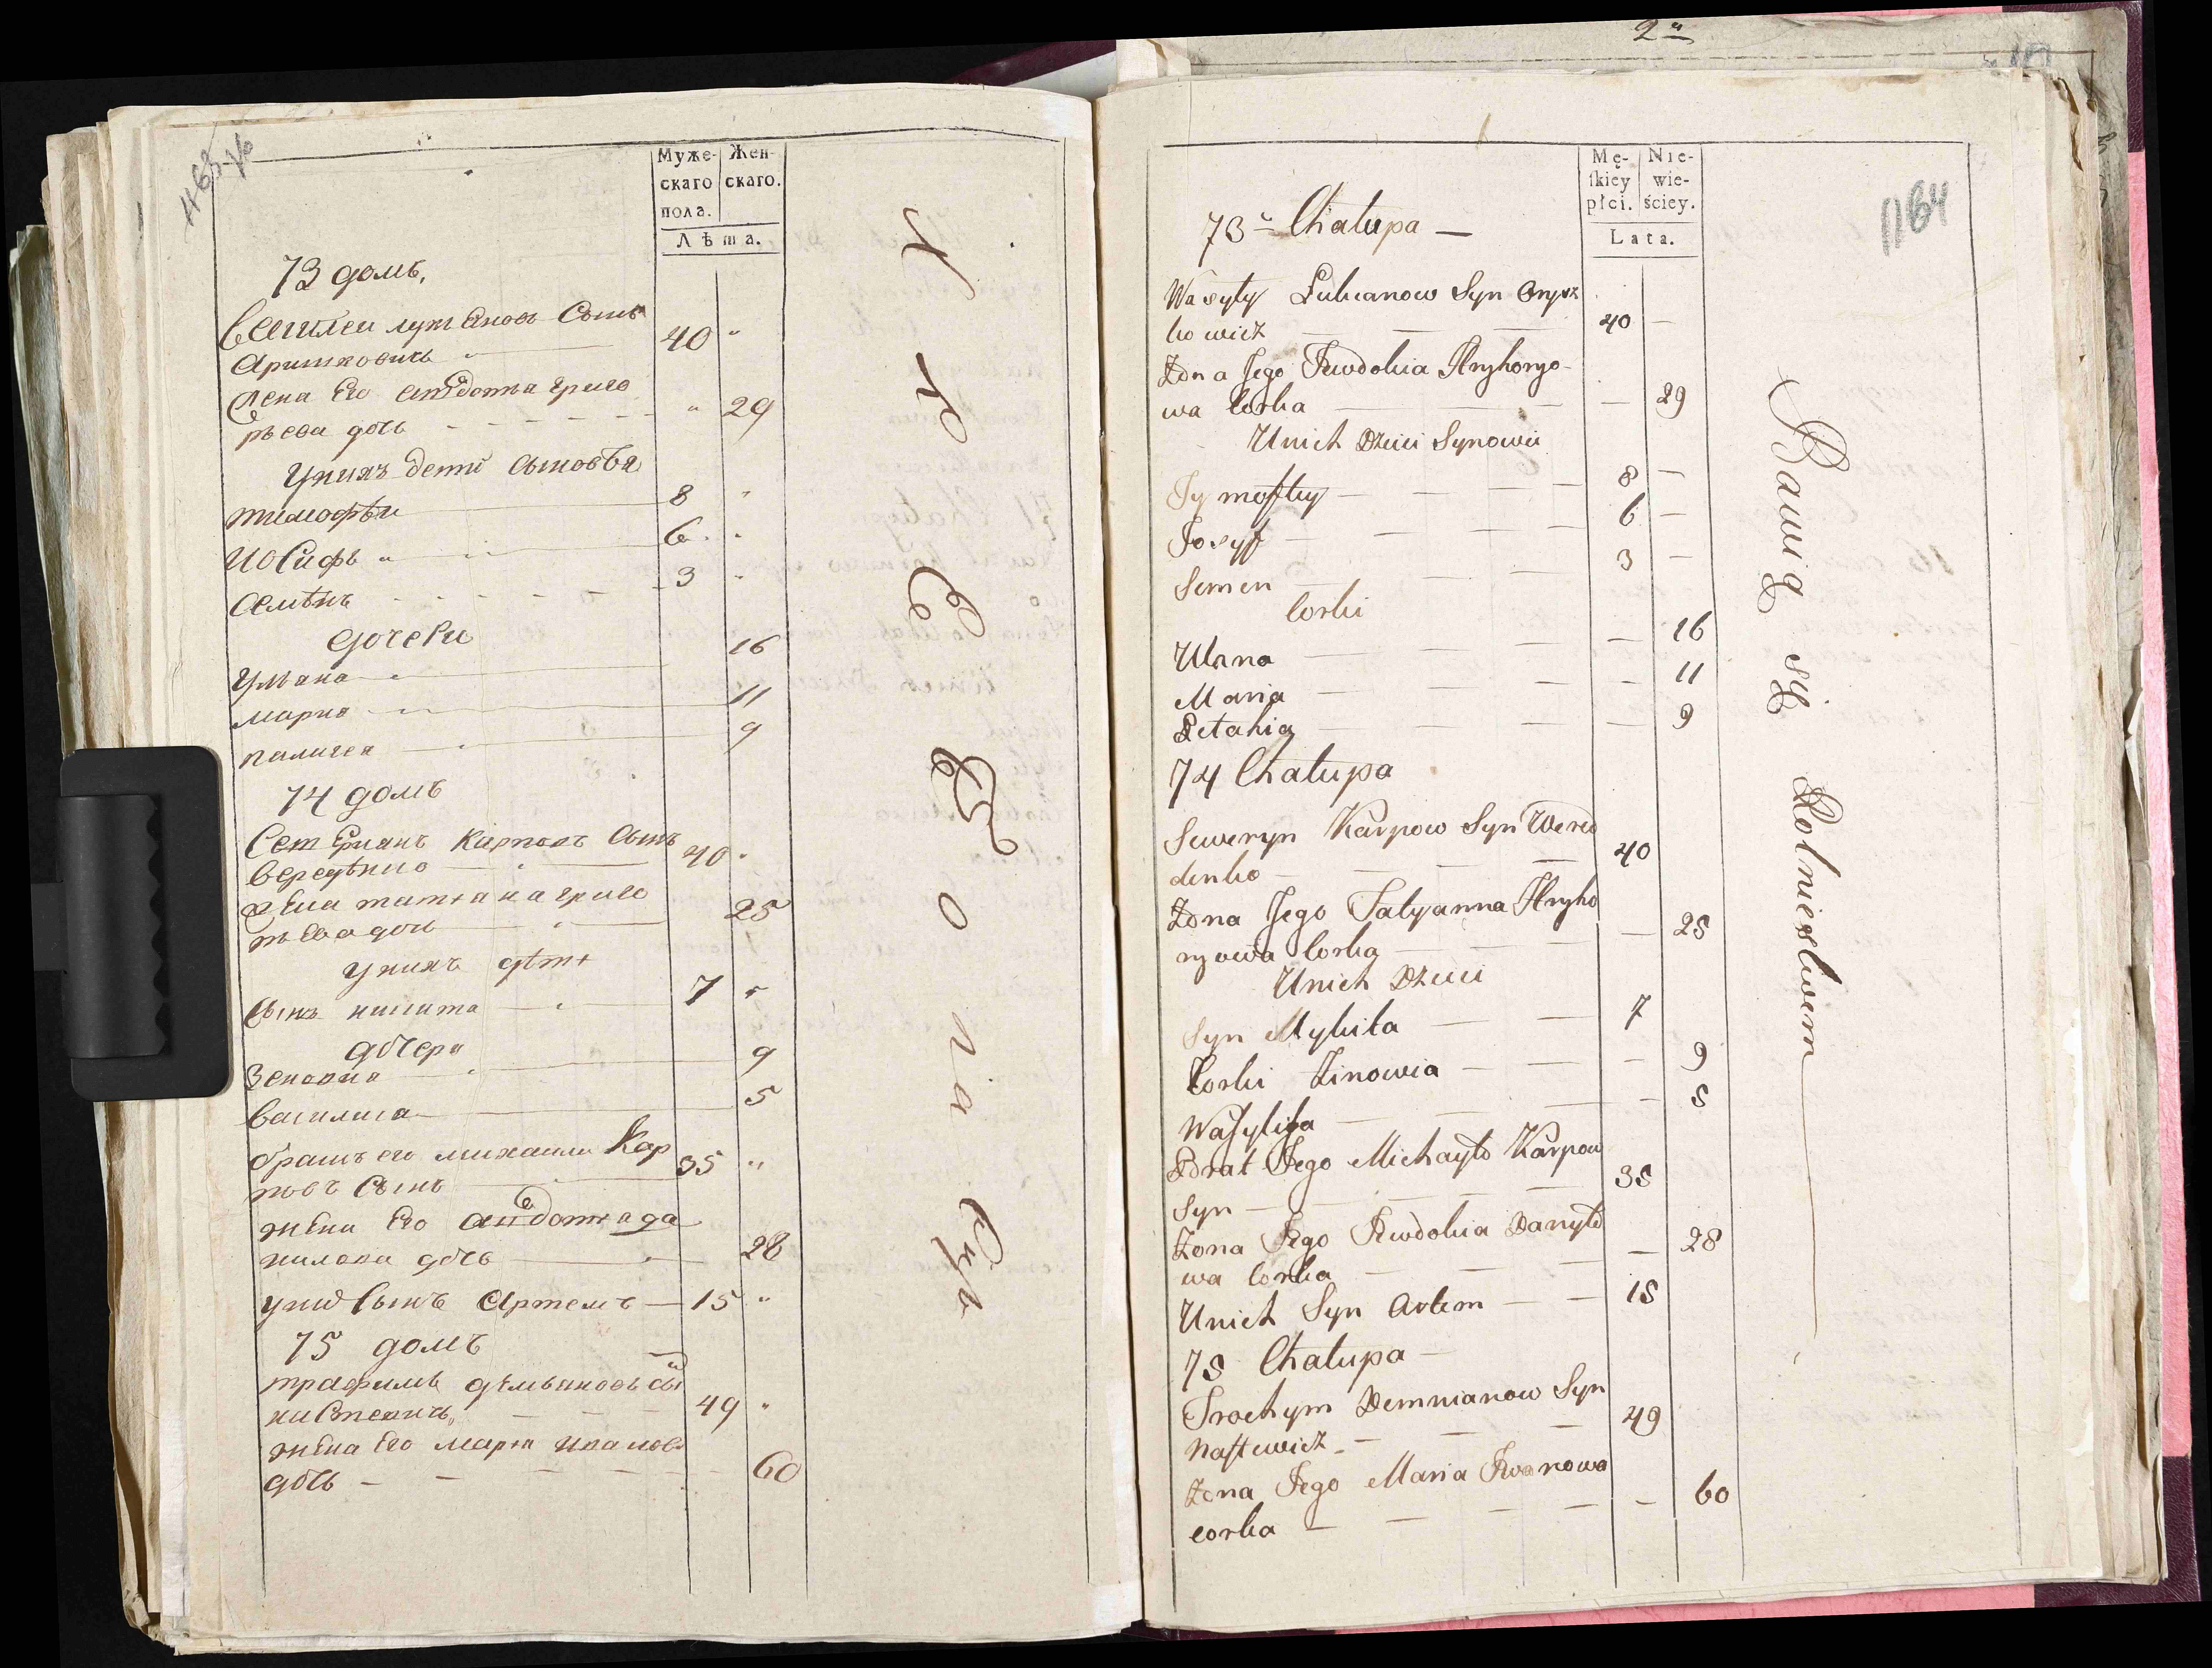 Муже-
скаго
пола.
Жен-
скаго.
Лѣта.
73 домъ,
Василеи лукяновъ Сынъ
Аришковичъ 40 "
жена Его евдотья григо
рьева дочь " 29
Унихъ дети Сыновья
тимофѣи 8 "
Иосифъ 6 "
Семѣнъ 3 "
дочери
Ульяна 16
мария 11
палагея 9
74 домъ
Севериянъ Карповъ Сынъ
Вередѣнко 40 "
жена татяна григо
рьева дочь 25
Унихъ дѣти
Сынъ никита 7 "
дочери
Зеновия 9
василиса 5
братъ его михаило Кар
повъ Сынъ 35 "
жена Его евдотия да
нилова дочь 28
Унихъ Сынъ Артемъ 15 "
75 домъ
трофимъ дѣмьяновъ сы
настевичъ 49 "
жена Его мария иванова
дочь 60
2"
1164
Mę-
skiey
płci.
Nie-
wie-
ściey.
Lata.
73" Chałupa —
Wasyly Lukianow Syn Orysz
kowicz — — — 40 —
Zona Jego Jewdokia Hryhoryo-
wa Corka — — — — 29
Unich Dzieci Synowie
Tymoftey — — — 8 —
Josyf — — — 6 —
Semen — — — 3 —
Corki
Ulana — — — — 16
Maria — — — — 11
Pelahia — — — — 9
74 Chałupa
Seweryn Karpow Syn Were
denko — — — 40
Zona Jego Tatyanna Hryho
ryowa Corka — — — 25
Unich Dzieci
Syn Mykita — — 7
Corki Zinowia — — — 9
Wasylisa — — — — 5
Brat Jego Michayło Karpow
Syn — — — — 35
Zona Jego Jewdokia Danyło
wa Corka — — — — 28
Unich Syn Artem — — 15
75 Chałupa —
Trochym Demnianow Syn
Nastewicz — — — 49
Zona Jego Maria Iwanowa
corka — — — — — 60
Bawią się Rolnictwem